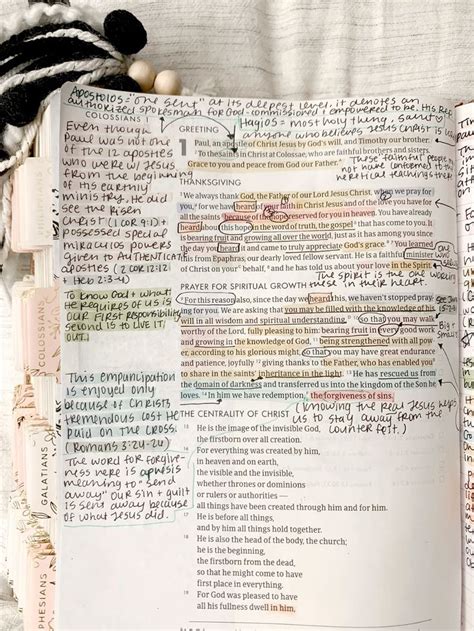 Apostolos = "one sent" at its deepest level, it denotes an
authorized spokesman for God - commissioned & empowered to be His Rep
COLOSSIANS 1
Hagios = most holy thing, saint
anyone who believes Jesus Christ is
Even though
Paul was not
one of the 12 apostles
who were w/ Jesus
from the beginning
of His earthly
ministry, He did
see the Risen
Christ (1 Cor 9:1) +
possessed special
miraculos powers
given to AUTHENTICATE
apostles (2 Cor 12:12
+ Heb 2:3-4)
To know God + what
He requires of us is
our first responsibility,
second is to LIVE IT
OUT.
This emancipation
is enjoyed only
because of Christ's
tremendous cost He
paid on the cross.
(Romans 3:24-26)
The word for forgive-
ness here is aphesis
meaning to "send
away" our sin + guilt
is sent away because
of what Jesus did.
GREETING
1 Paul, an apostle of Christ Jesus by God's will, and Timothy our brother:
2 To the saints in Christ at Colossae, who are faithful brothers and sisters.
Grace to you and peace from God our Father.
These faithful people
not have listened to
heretical teachings there
THANKSGIVING
3 We always thank God, the Father of our Lord Jesus Christ, when we pray for
you, 4 for we have heard of your faith in Christ Jesus and of the love you have for
all the saints 5 because of the hope reserved for you in heaven. You have already
heard about this hope in the word of truth, the gospel 6 that has come to you. It
is bearing fruit and growing all over the world, just as it has among you since
the day you heard it and came to truly appreciate God's grace. 7 You learned
this from Epaphras, our dearly loved fellow servant. He is a faithful minister
of Christ on your behalf, 8 and he has told us about your love in the Spirit.
one who
The spirit is the one working
these in their heart.
PRAYER FOR SPIRITUAL GROWTH
9 For this reason also, since the day we heard this, we haven't stopped pray-
ing for you. We are asking that you may be filled with the knowledge of his
will in all wisdom and spiritual understanding, 10 so that you may walk
worthy of the Lord, fully pleasing to him: bearing fruit in every good work
and growing in the knowledge of God, 11 being strengthened with all pow-
er, according to his glorious might, so that you may have great endurance
and patience, joyfully 12 giving thanks to the Father, who has enabled you
to share in the saints' inheritance in the light. 13 He has rescued us from
the domain of darkness and transferred us into the kingdom of the Son he
loves. 14 In him we have redemption, the forgiveness of sins.
Big +
small
(Knowing the real Jesus helps
us to stay away from the
counter feit.)
THE CENTRALITY OF CHRIST
15 He is the image of the invisible God,
the firstborn over all creation.
16 For everything was created by him,
in heaven and on earth,
the visible and the invisible,
whether thrones or dominions
or rulers or authorities —
all things have been created through him and for him.
17 He is before all things,
and by him all things hold together.
18 He is also the head of the body, the church;
he is the beginning,
the firstborn from the dead,
so that he might come to have
first place in everything.
19 For God was pleased to have
all his fullness dwell in him,
COLOSSIANS
GALATIANS
EPHESIANS